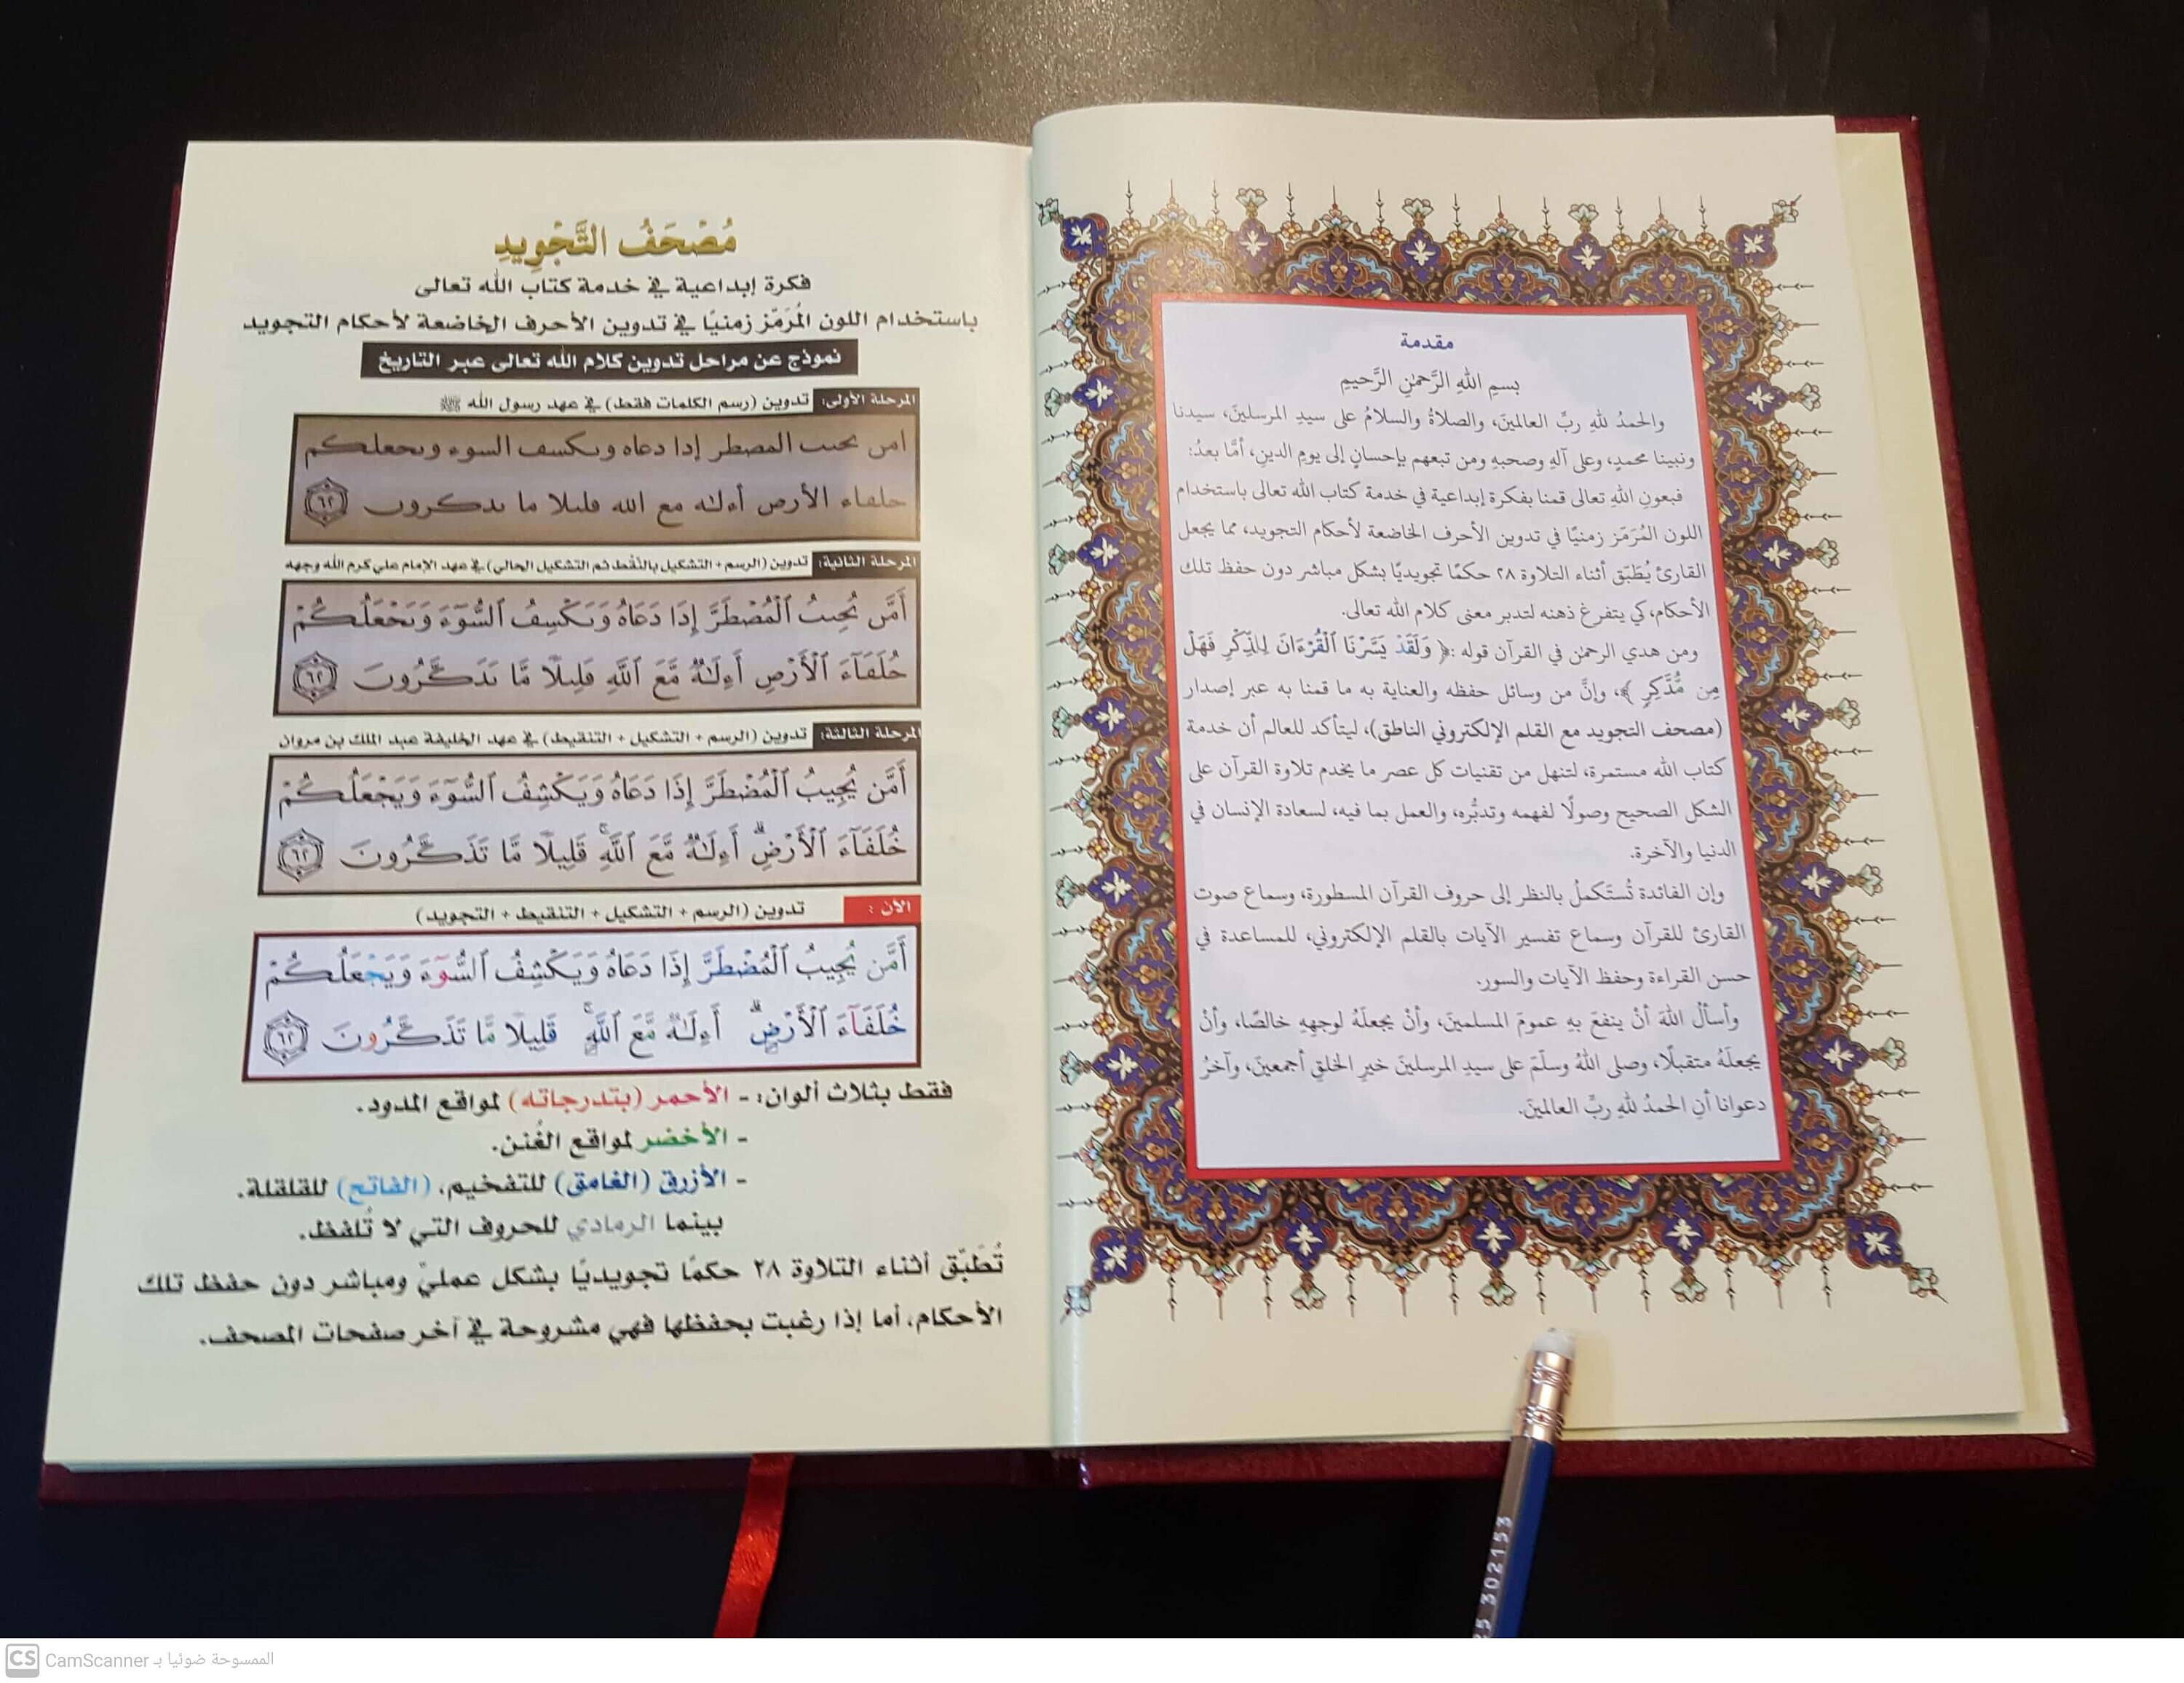 مقدمة
بسمِ اللهِ الرَّحمٰنِ الرَّحيمِ
والحمدُ للهِ ربِّ العالمينَ، والصلاةُ والسلامُ على سيدِ المرسلينَ، سيدنا
ونبينا محمدٍ، وعلى آلهِ وصحبهِ ومن تبعهم بإحسانٍ إلى يومِ الدينِ، أمَّا بعدُ:
فبعونِ اللهِ تعالى قمنا بفكرة إبداعية في خدمة كتاب الله تعالى باستخدام
اللون المُرَمَّز زمنيًا في تدوين الأحرف الخاضعة لأحكام التجويد، مما يجعل
القارئ يُطَبِّق أثناء التلاوة ٢٨ حكمًا تجويديًا بشكل مباشر دون حفظ تلك
الأحكام، كي يتفرغ ذهنه لتدبر معنى كلام الله تعالى.
ومن هدي الرحمٰن في القرآن قوله :﴿ وَلَقَدْ يَسَّرْنَا ٱلْقُرْءَانَ لِلذِّكْرِ فَهَلْ
مِن مُّدَّكِرٍ ﴾، وإنَّ من وسائل حفظه والعناية به ما قمنا به عبر إصدار
(مصحف التجويد مع القلم الإلكتروني الناطق)، ليتأكد للعالم أن خدمة
كتاب الله مستمرة، لتنهل من تقنيات كل عصر ما يخدم تلاوة القرآن على
الشكل الصحيح وصولًا لفهمه وتدبُّره، والعمل بما فيه، لسعادة الإنسان في
الدنيا والآخرة.
وإن الفائدة تُستَكملُ بالنظر إلى حروف القرآن المسطورة، وسماع صوت
القارئ للقرآن وسماع تفسير الآيات بالقلم الإلكتروني، للمساعدة في
حسن القراءة وحفظ الآيات والسور.
وأسألُ اللهَ أنْ ينفعَ بهِ عمومَ المسلمينَ، وأنْ يجعلَهُ لوجههِ خالصًا، وأنْ
يجعلَهُ متقبلًا، وصلى اللهُ وسلّمَ على سيدِ المرسلينَ خيرِ الخلقِ أجمعينَ، وآخرُ
دعوانا أنِ الحمدُ للهِ ربِّ العالمينَ.
مُصْحَفُ التَّجْوِيدِ
فكرة إبداعية في خدمة كتاب الله تعالى
باستخدام اللون المُرَمّز زمنيًا في تدوين الأحرف الخاضعة لأحكام التجويد
نموذج عن مراحل تدوين كلام الله تعالى عبر التاريخ
المرحلة الأولى: تدوين (رسم الكلمات فقط) في عهد رسول الله ﷺ
امں ىحىٮ المصطر إدا دعاه وىكسف السوء وىحعلكم
حلفاء الأرص أءلـٰه مع الله فلىلا ما ىدكروں ٦٢
المرحلة الثانية: تدوين (الرسم + التشكيل بالنُّقَط ثم التشكيل الحالي) في عهد الإمام علي كرم الله وجهه
أَمَّں ىُحِىٮُ ٱلْمُصْطَرَّ إِدَا دَعَاهُ وَىَكْسِفُ ٱلسُّوٓءَ وَىَحْعَلُكُمْ
حُلَفَآءَ ٱلْأَرْصِ أَءِلَـٰهٌ مَّعَ ٱللَّهِ فَلِىلًا مَّا ىَدَكَّرُوںَ ٦٢
المرحلة الثالثة: تدوين (الرسم + التشكيل + التنقيط) في عهد الخليفة عبد الملك بن مروان
أَمَّن يُجِيبُ ٱلْمُضْطَرَّ إِذَا دَعَاهُ وَيَكْشِفُ ٱلسُّوٓءَ وَيَجْعَلُكُمْ
خُلَفَآءَ ٱلْأَرْضِ ۗ أَءِلَـٰهٌ مَّعَ ٱللَّهِ ۚ قَلِيلًا مَّا تَذَكَّرُونَ ٦٢
الآن : تدوين (الرسم + التشكيل + التنقيط + التجويد)
أَمَّن يُجِيبُ ٱلْمُضْطَرَّ إِذَا دَعَاهُ وَيَكْشِفُ ٱلسُّوٓءَ وَيَجْعَلُكُمْ
خُلَفَآءَ ٱلْأَرْضِ ۗ أَءِلَـٰهٌ مَّعَ ٱللَّهِ ۚ قَلِيلًا مَّا تَذَكَّرُونَ ٦٢
فقط بثلاث ألوان: - الأحمر (بتدرجاته) لمواقع المدود.
- الأخضر لمواقع الغُنن.
- الأزرق (الغامق) للتفخيم، (الفاتح) للقلقلة.
بينما الرمادي للحروف التي لا تُلفظ.
تُطَبِّق أثناء التلاوة ٢٨ حكمًا تجويديًا بشكل عمليّ ومباشر دون حفظ تلك
الأحكام، أما إذا رغبت بحفظها فهي مشروحة في آخر صفحات المصحف.
302153
CS CamScanner الممسوحة ضوئيا بـ